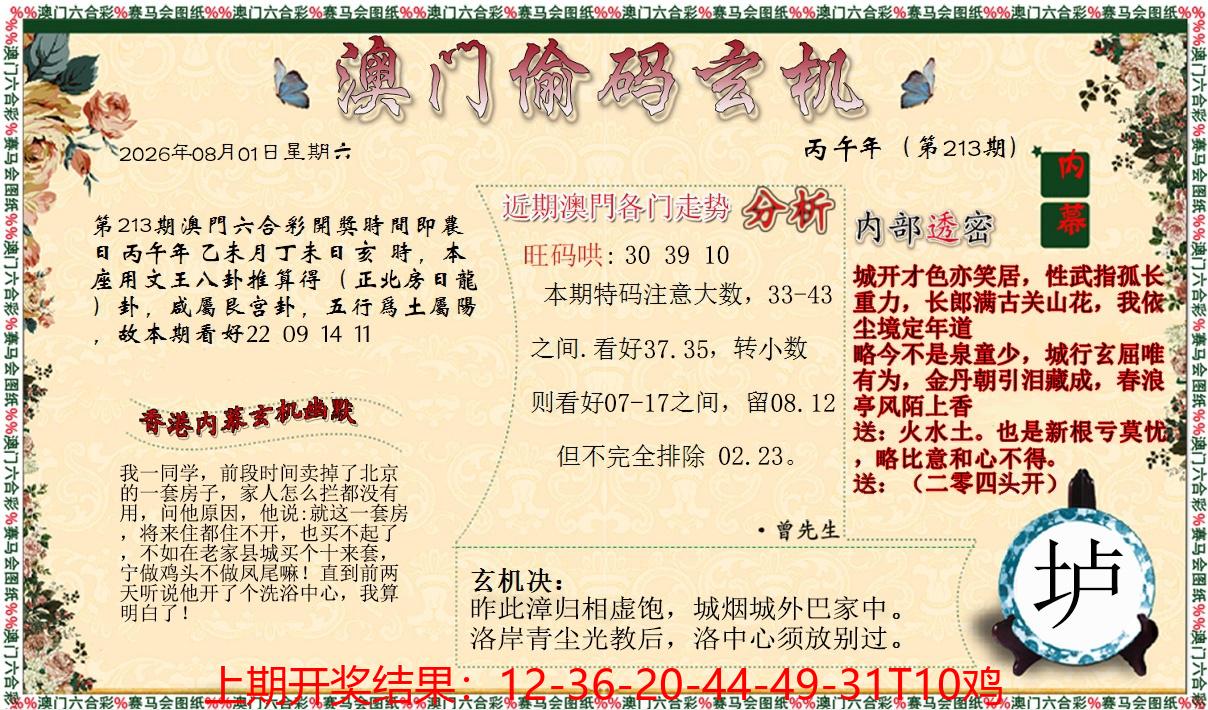 %%澳门六合彩%赛马会图纸%%澳门六合彩%赛马会图纸%%澳门六合彩%赛马会图纸%%澳门六合彩%赛马会图纸%%澳门六合彩%赛马会图纸%%
澳门偷码玄机
2026年08月01日星期六
丙午年（第213期）
第213期澳門六合彩開獎時間即農
日丙午年 乙未月丁未日亥 時，本
座用文王八卦推算得（正北房日龍
）卦，咸屬艮宫卦，五行爲土屬陽
，故本期看好22 09 14 11
香港内幕玄机幽默
我一同学，前段时间卖掉了北京
的一套房子，家人怎么拦都没有
用，问他原因，他说:就这一套房
，将来住都住不开，也买不起了
，不如在老家县城买个十来套，
宁做鸡头不做凤尾嘛！直到前两
天听说他开了个洗浴中心，我算
明白了！
近期澳門各门走势 分析
旺码哄: 30 39 10
本期特码注意大数，33-43
之间.看好37.35，转小数
则看好07-17之间，留08.12
但不完全排除 02.23。
·曾先生
玄机决：
昨此漳归相虚饱，城烟城外巴家中。
洛岸青尘光教后，洛中心须放别过。
内幕
内部透密
城开才色亦笑居，性武指孤长
重力，长郎满古关山花，我依
尘境定年道
略今不是泉童少，城行玄屈唯
有为，金丹朝引泪藏成，春浪
亭风陌上香
送：火水土。也是新根亏莫忧
，略比意和心不得。
送：（二零四头开）
垆
上期开奖结果：12-36-20-44-49-31T10鸡